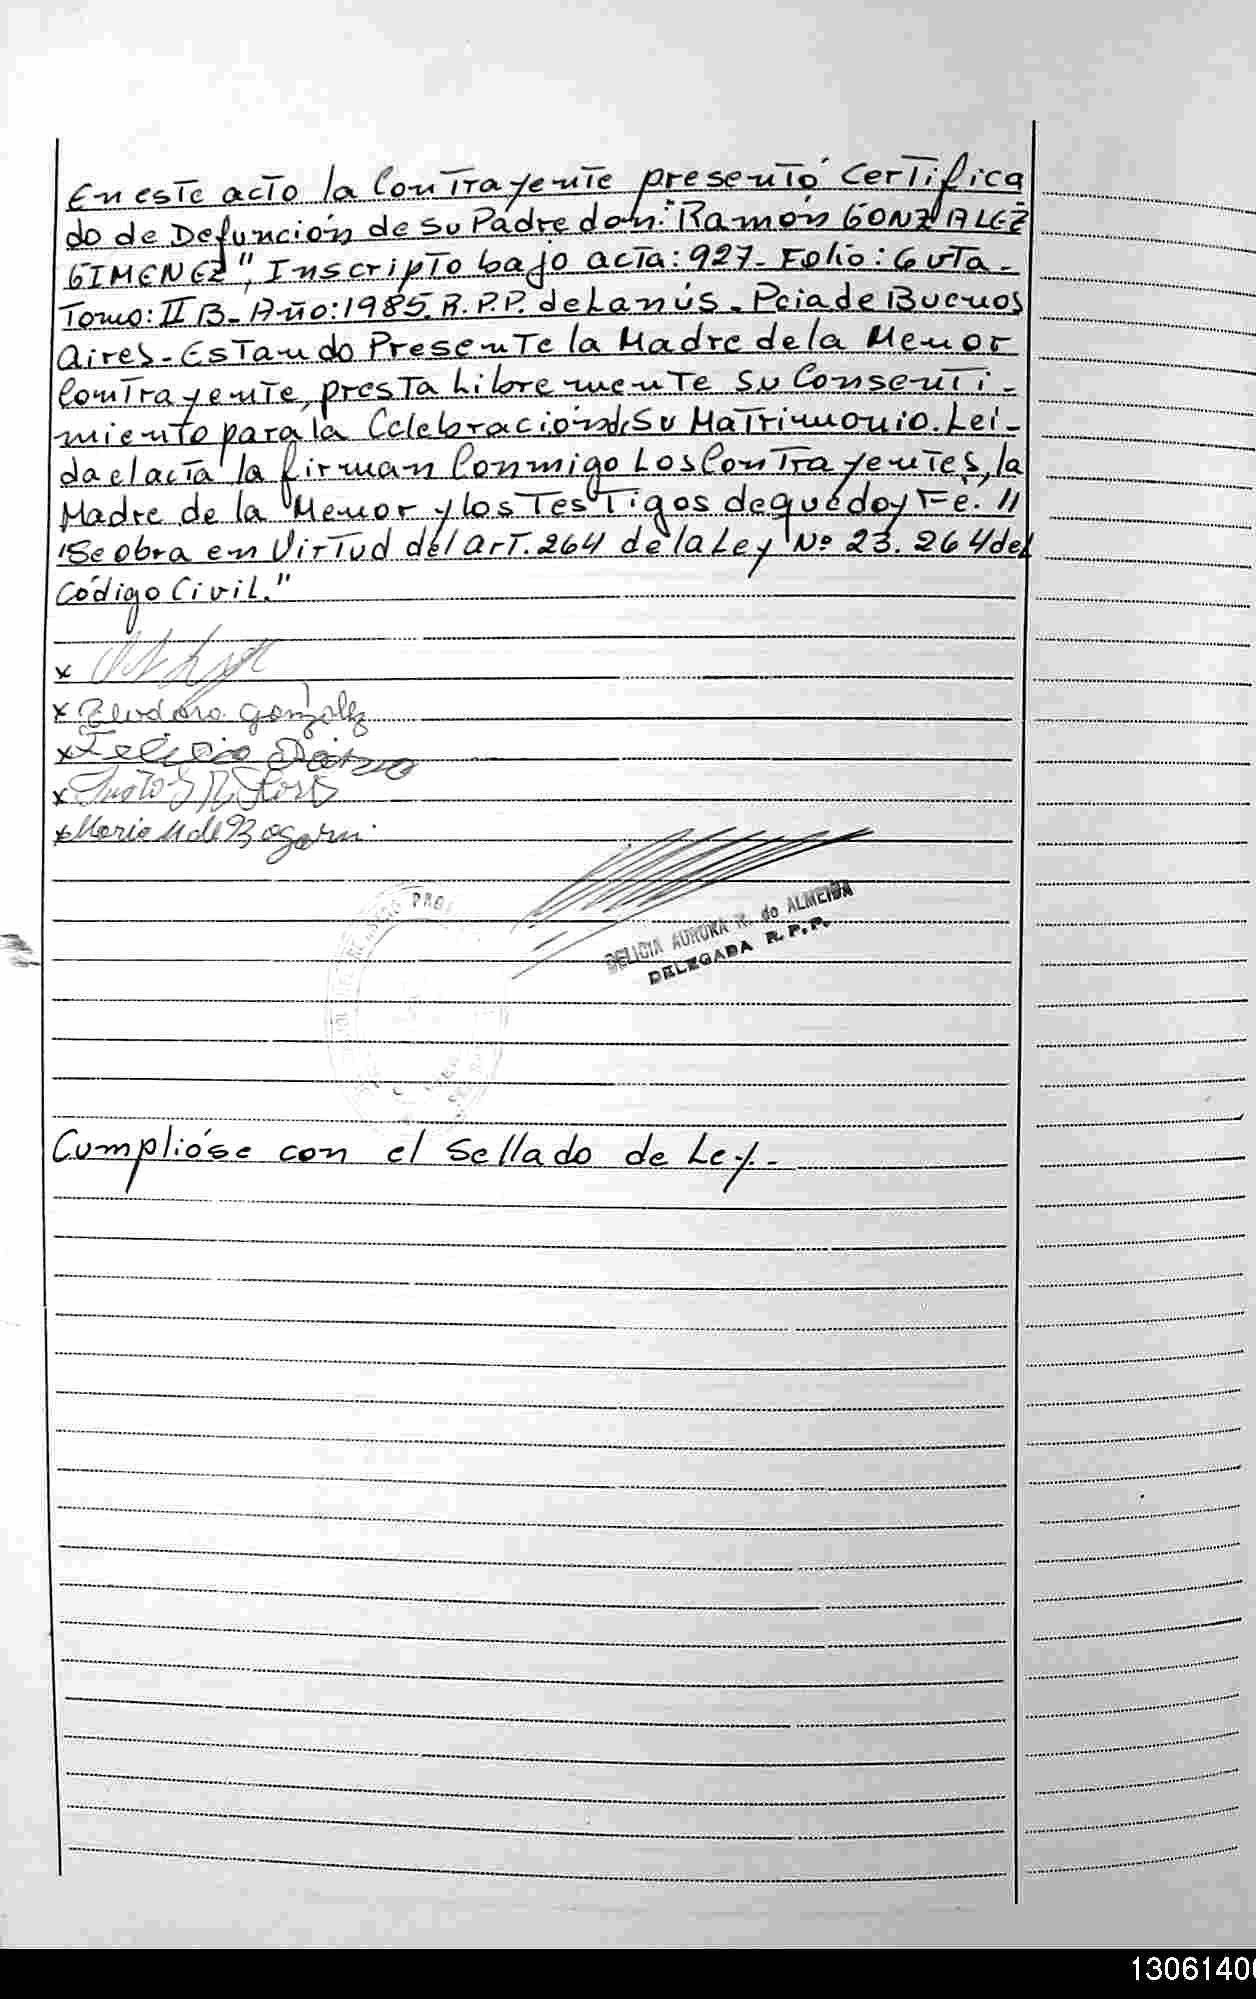 En este acto la Contrayente presentó Certifica
do de Defunción de Su Padre don: "Ramón GONZALEZ
GIMENEZ", Inscripto bajo acta: 927- Folio: Guta-
Tomo: II B- Año: 1985. R.P.P. de Lanús- Pcia de Buenos
Aires- Estando Presente la Madre de la Menor
Contrayente, presta Libremente su Consenti-
miento para la Celebración de Su Matrimonio. Leí-
da el acta la firman Conmigo Los Contrayentes, la
Madre de la Menor y los Testigos de que doy Fé. //
"Se obra en Virtud del Art. 264 de la Ley Nº 23.264 del
Código Civil."
x
x Teodora González
x Felicia
x
x Maria M de Bogarin
DELICIA AURORA R. de ALMEIDA
DELEGADA R.P.P.
Cumplióse con el Sellado de Ley.-
1306140